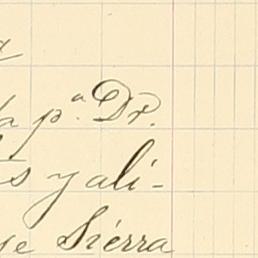 a
a pª. Dr.
s y ali-
ge Sierra